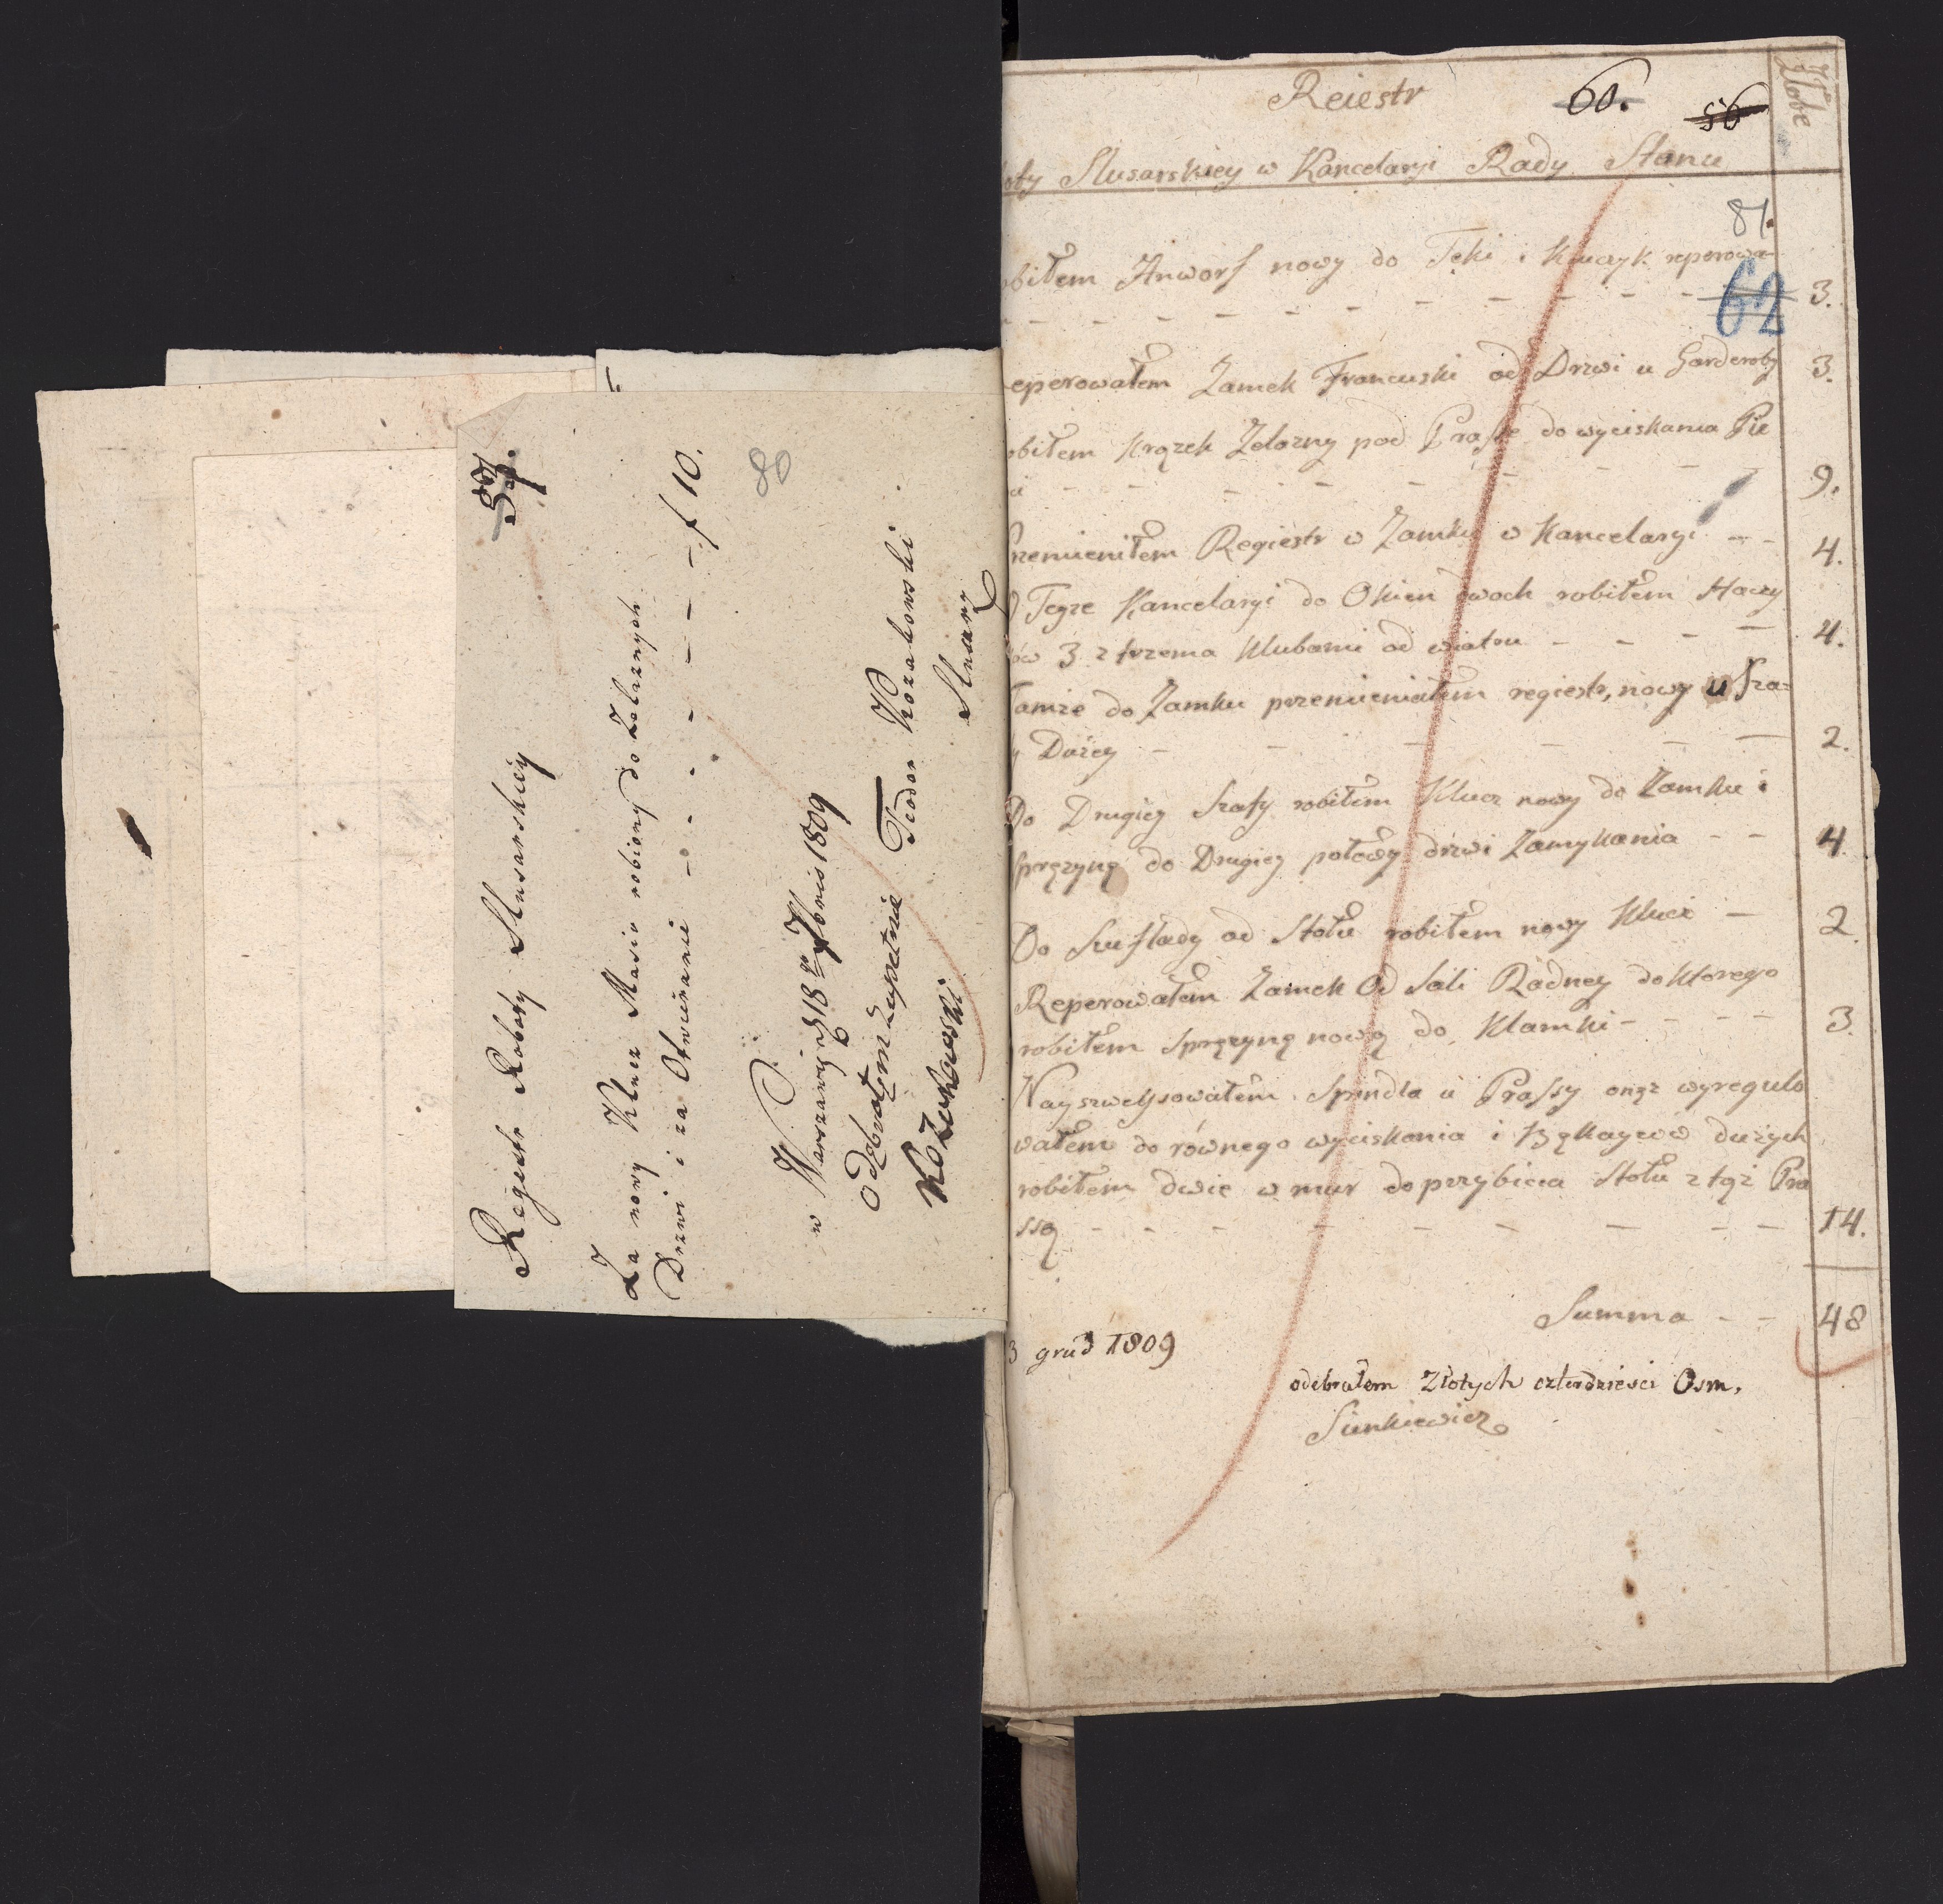 57.
80
Regestr Roboty Slusarskiey
Za nowy Klucz Masiv robiony do Zelaznych
Drzwi i za Otwieranie - - - - - - - f 10.
w Warszawie d 18 go Xbris 1809
Odebrałem zupełnie Teodor Kozakowski
Slusarz
Kozakowski
Reiestr
60.
56
Złote
oty Slusarskiey w Kancelaryi Rady Stanu
81.
obiłem Anworf nowy do Teki i Kluczyk reperowa-
- - - - - - - - - - 3.
62
eperowałem Zamek Francuski od Drzwi u Garderoby 3.
obiłem Krązek Zelazny pod Prasse do wyciskania Pie
- - - - - - - 9.
rzemieniłem Regiestr w Zamku w Kancelaryi - - 4.
Teyze Kancelaryi do Okien dwoch robiłem Haczy
ów 3 z trzema Klubami od wiatru - - - - 4.
Tamze do Zamku przemieniałem regiestr, nowy u Sza=
y Duzey - - - - - - 2.
Do Drugiey Szafy robiłem Klucz nowy do Zamku i
Spręzynę do Drugiey połowy drzwi Zamykania - - 4
Do Szuflady od Stołu robiłem nowy Klucz - 2.
Reperowałem Zamek Od Sali Radney do ktorego
robiłem Spręzynę nową do Klamki - - - - 3.
Nayszweysowałem Spindla u Prassy oraz wyregulo
wałem do równego wyciskania i Bękayców dużych
robiłem dwie w mur do przybicia Stołu z tąż Pra
ssą - - - - - - - - - 14.
Summa - - 48
3 grud 1809
odebrałem Złotych czterdzieści Osm.
Sinkiewicz